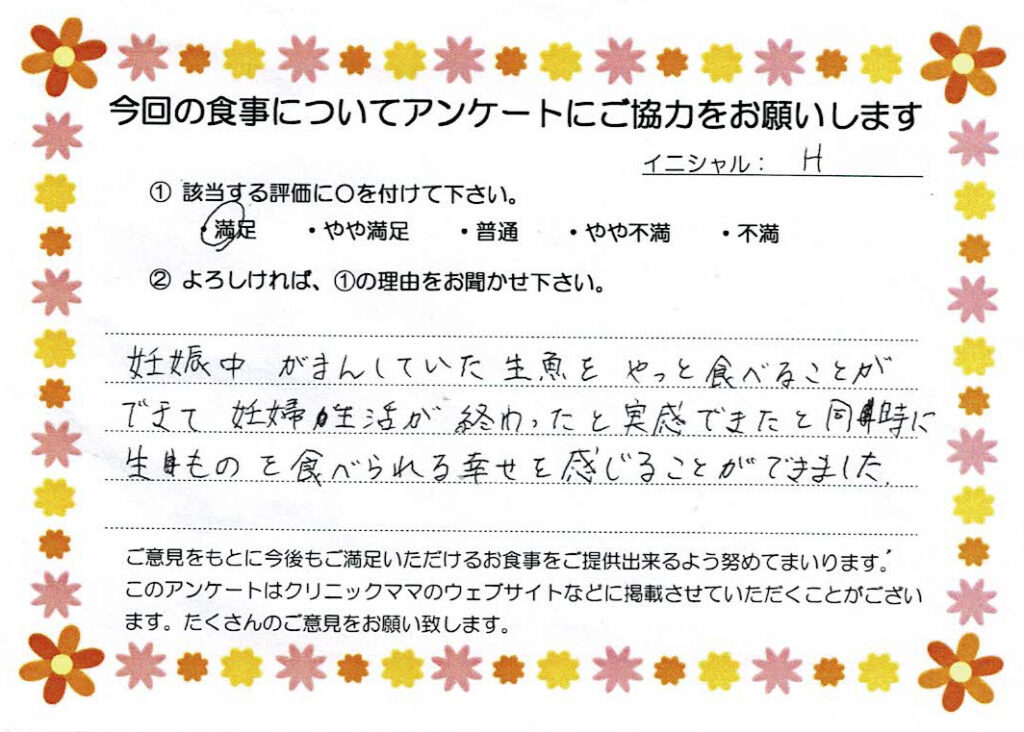 今回の食事についてアンケートにご協力をお願いします
イニシャル： H
① 該当する評価に〇を付けて下さい。
・満足 ・やや満足 ・普通 ・やや不満 ・不満
② よろしければ、①の理由をお聞かせ下さい。
妊娠中 がまんしていた 生魚を やっと食べることが
できて 妊婦生活が 終わったと実感できたと同時に
生ものを食べられる幸せを感じることができました。
ご意見をもとに今後もご満足いただけるお食事をご提供出来るよう努めてまいります。
このアンケートはクリニックママのウェブサイトなどに掲載させていただくことがござい
ます。たくさんのご意見をお願い致します。